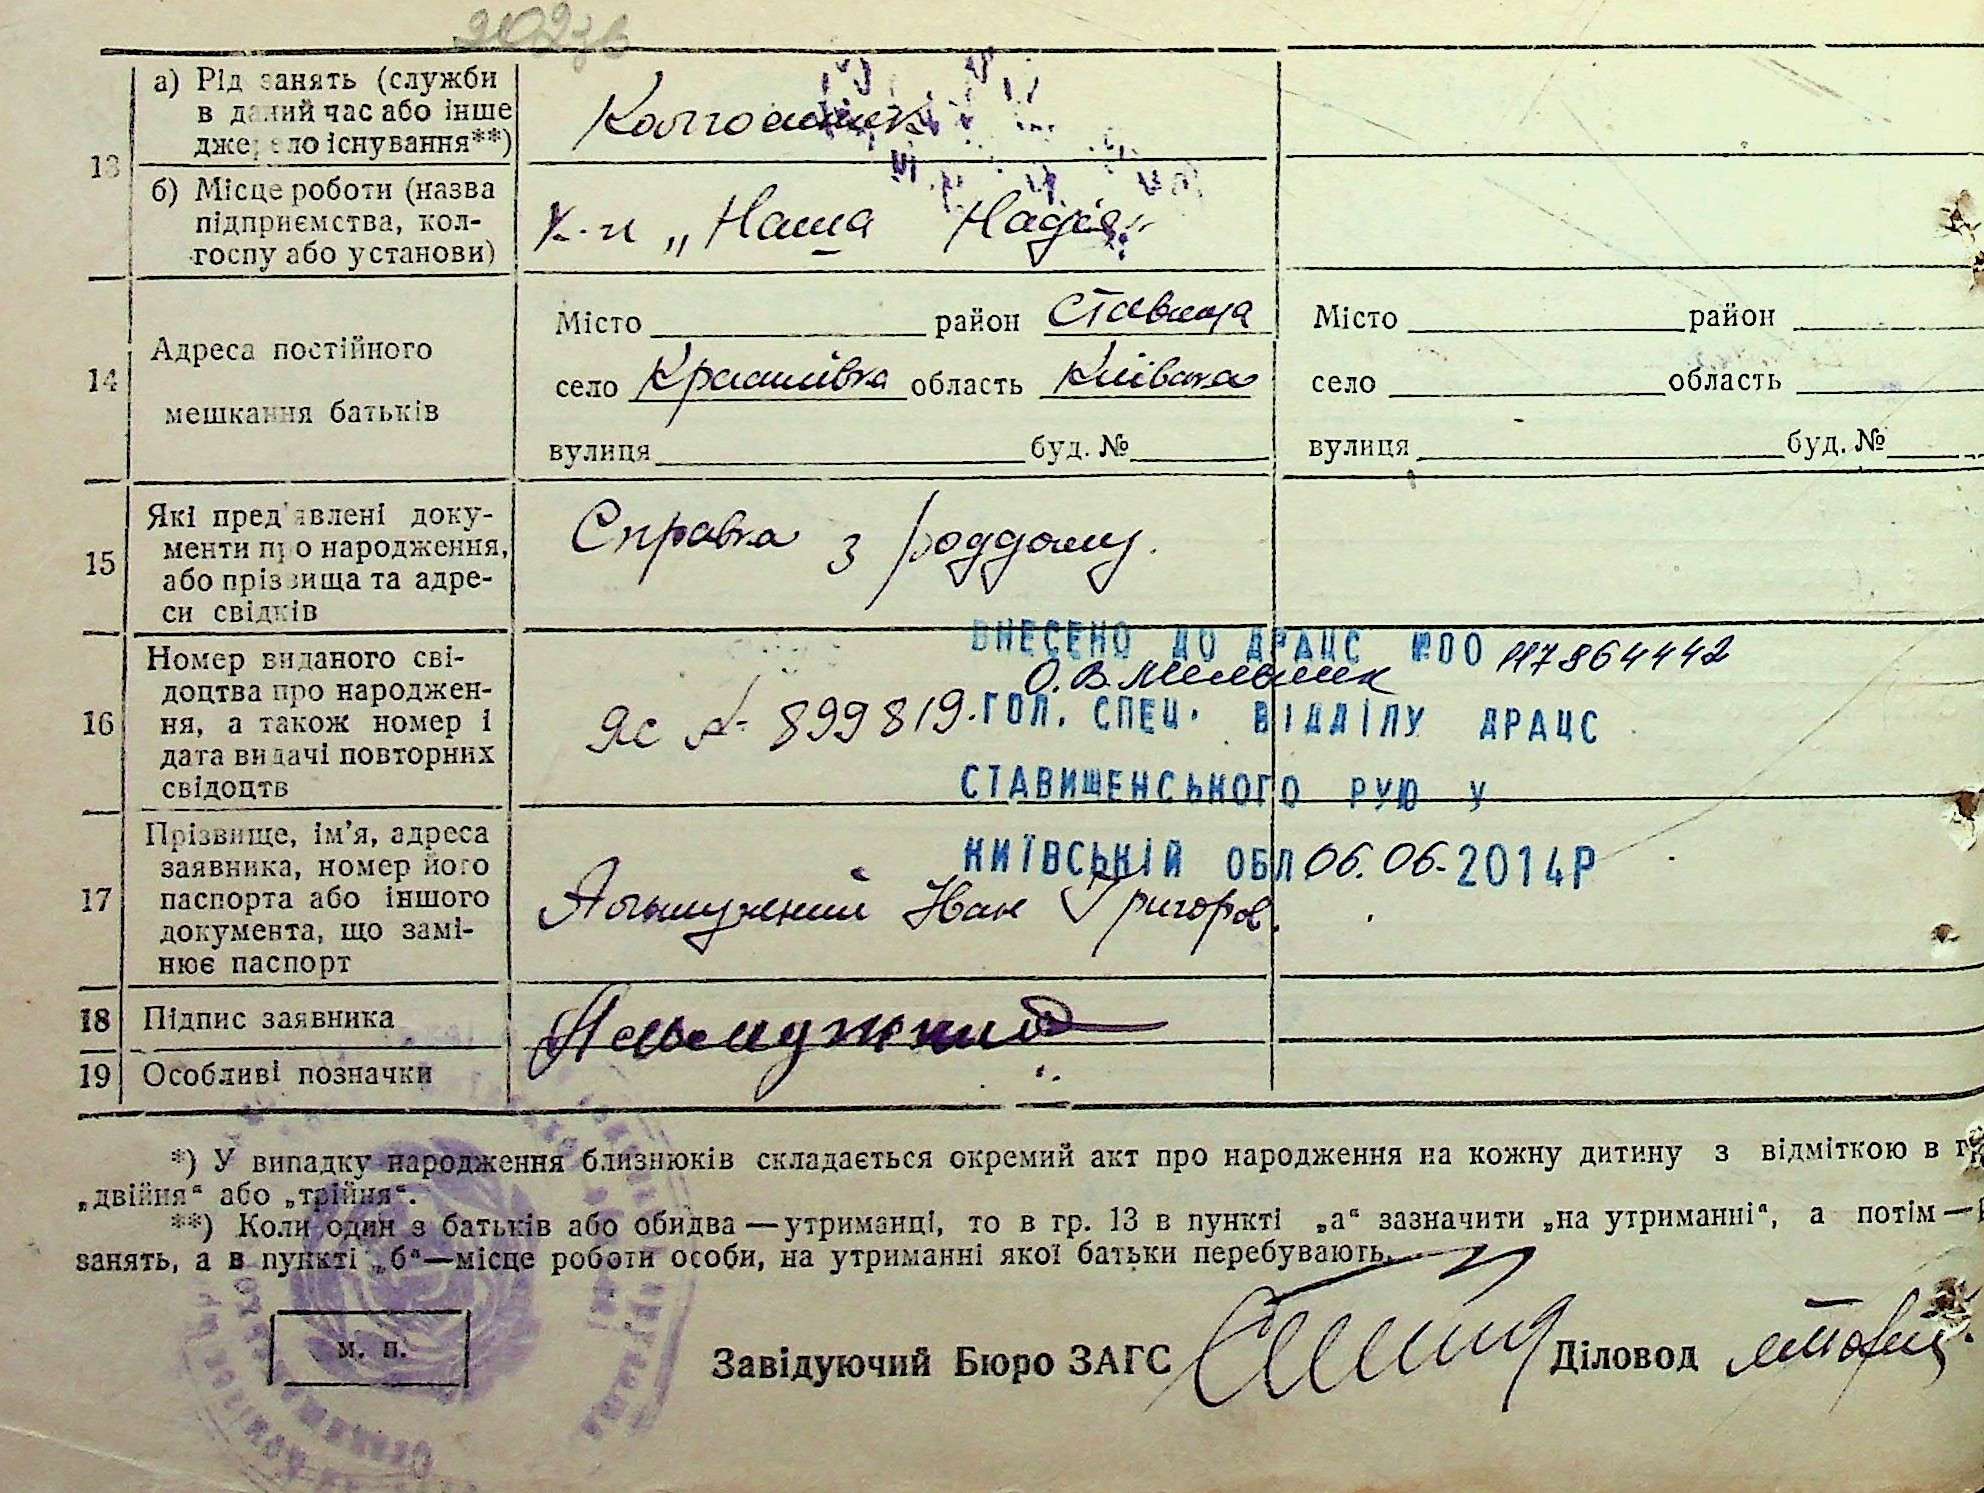 13
а) Рід занять (служби
в даний час або інше
джерело існування**)
Колгоспник
б) Місце роботи (назва
підприємства, кол-
госпу або установи)
К-п „Наша Надія"
14
Адреса постійного
мешкання батьків
Місто район Ставища
село Красилівка область Київська
вулиця буд. №
Місто район
село область
вулиця буд. №
15
Які пред'явлені доку-
менти про народження,
або прізвища та адре-
си свідків
Справка з роддому.
16
Номер виданого сві-
доцтва про народжен-
ня, а також номер і
дата видачі повторних
свідоцтв
899819.
ВНЕСЕНО ДО ДРАЦС №00 117864442
О.В. Мельник
ГОЛ. СПЕЦ. ВІДДІЛУ ДРАЦС
СТАВИЩЕНСЬКОГО РУЮ У
КИЇВСЬКІЙ ОБЛ. 06.06.2014Р
17
Прізвище, ім'я, адреса
заявника, номер його
паспорта або іншого
документа, що замі-
нює паспорт
Іван Григоров.
18
Підпис заявника
19
Особливі позначки
*) У випадку народження близнюків складається окремий акт про народження на кожну дитину з відміткою в
„двійня“ або „трійня“.
**) Коли один з батьків або обидва—утриманці, то в гр. 13 в пункті „а“ зазначити „на утриманні“, а потім—
занять, а в пункті „б“—місце роботи особи, на утриманні якої батьки перебувають.
м. п.
Завідуючий Бюро ЗАГС
Діловод